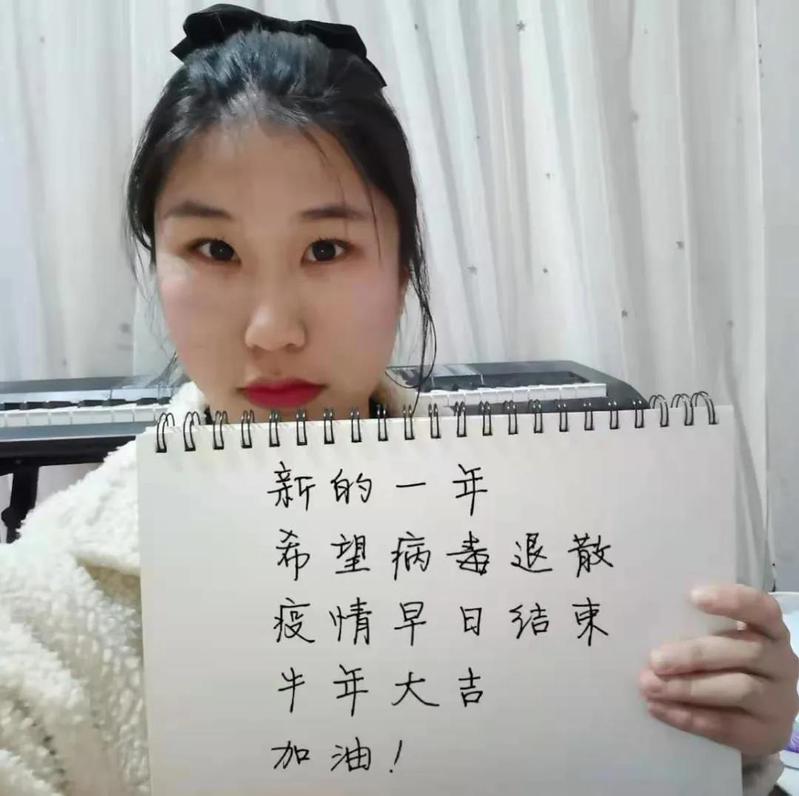 新的一年
希望病毒退散
疫情早日结束
牛年大吉
加油!